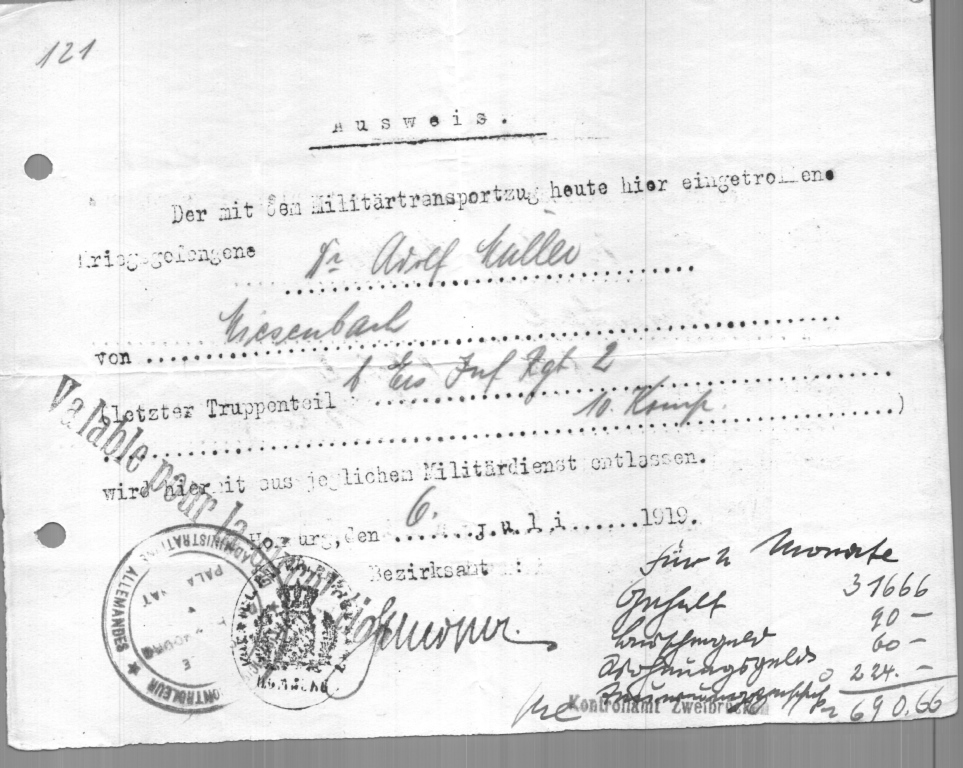 121
Ausweis.
Der mit dem Militärtransportzug heute hier eingetroffene
Kriegsgefangene Dr Adolf Müller
von Miesenbach
(letzter Truppenteil b Ers Inf Rgt 2
10. Komp. )
wird hiermit aus jeglichen Militärdienst entlassen.
Homburg, den 6. Juli 1919.
Bezirksamt :
Valable pour la
CONTROLEUR ADMINISTRATI ALLEMANDES
PALA NAT
HOMBURG
Für 2 Monate
Gehalt 31666
90 –
Wohnungsgeld 60 –
224. –
690.66
Kontrollamt Zweibrücken